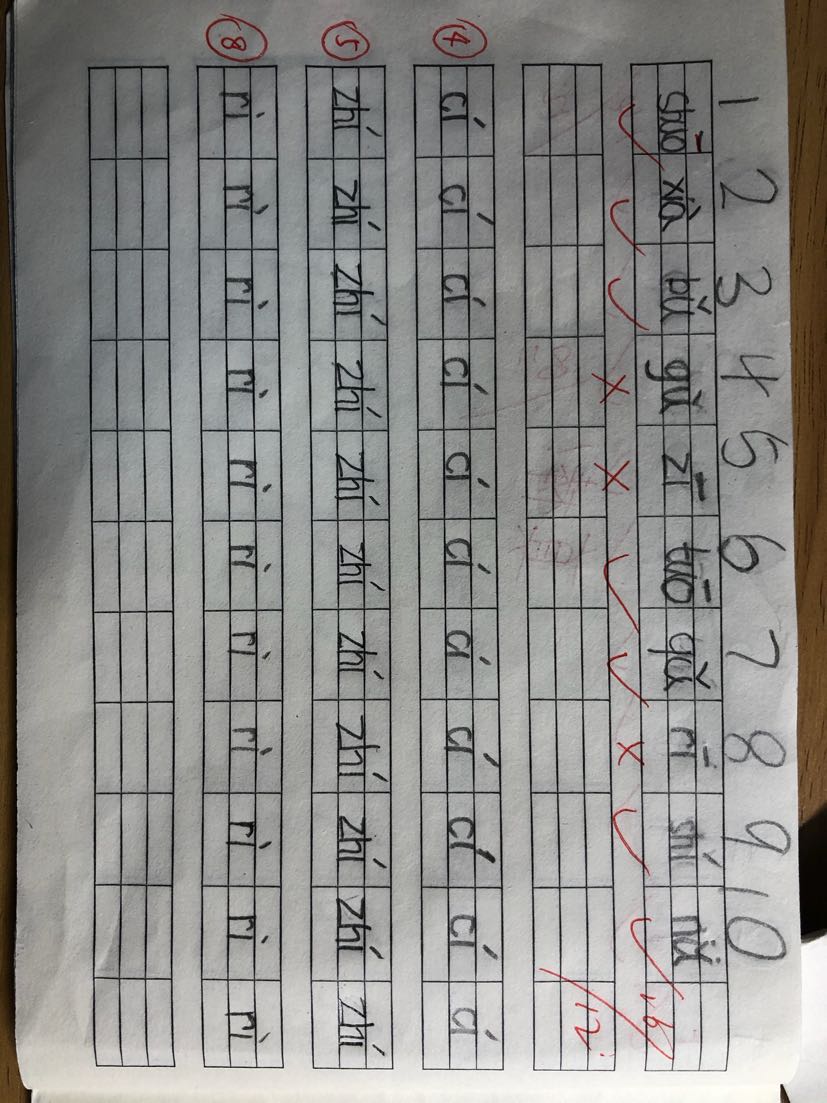 1 2 3 4 5 6 7 8 9 10
shuō xià bǔ gǔ zī tuō qǔ rí shí nǚ
4 cí cí cí cí cí cí cí cí cí cí cí
5 zhí zhí zhí zhí zhí zhí zhí zhí zhí zhí zhí
8 rì rì rì rì rì rì rì rì rì rì rì